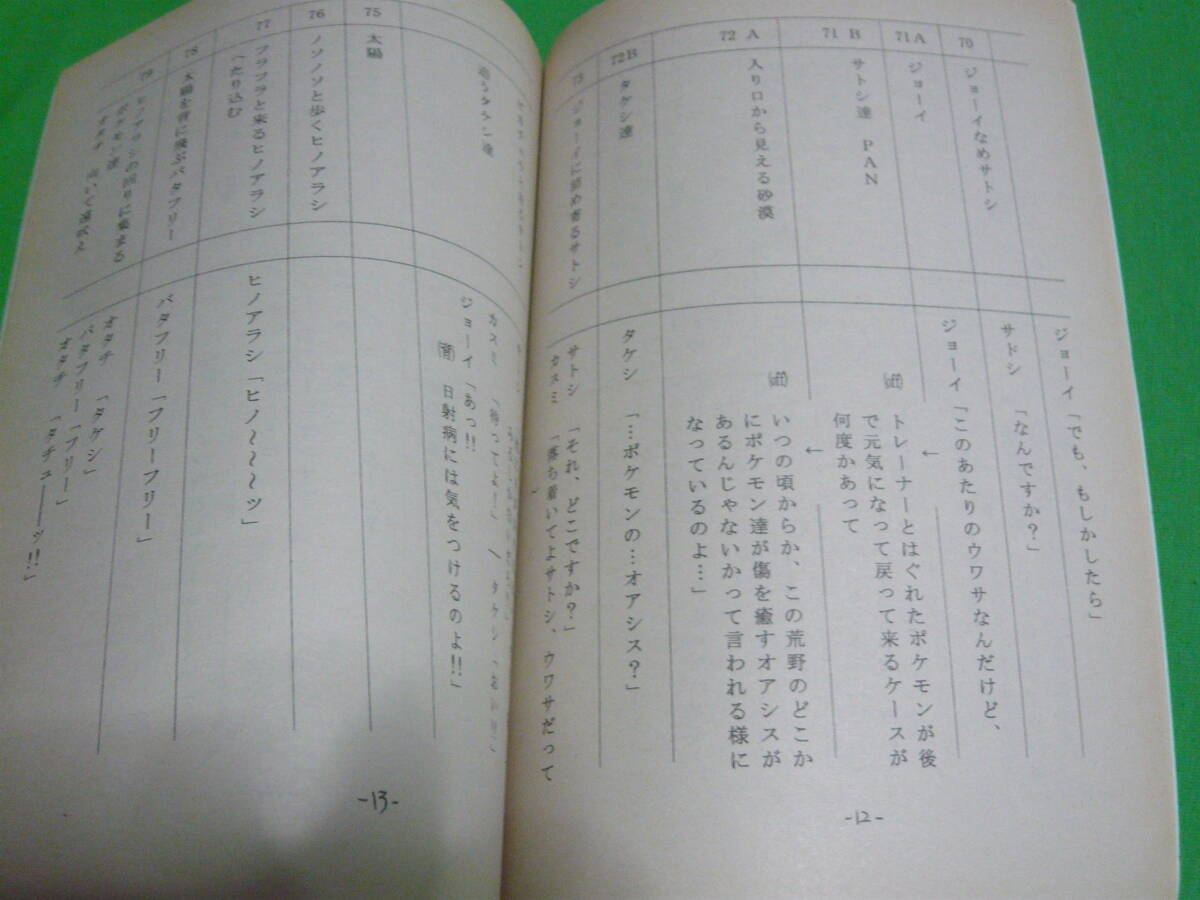 70
ジョーイなめサトシ
ジョーイ「でも、もしかしたら」
サトシ「なんですか？」
71A
ジョーイ
ジョーイ「このあたりのウワサなんだけど、
71 B
サトシ達 PAN
↓
(off)
トレーナーとはぐれたポケモンが後
で元気になって戻って来るケースが
何度かあって
72 A
入り口から見える砂漠
↓
(off)
いつの頃からか、この荒野のどこか
にポケモン達が傷を癒すオアシスが
あるんじゃないかって言われる様に
なっているのよ…」
72B
タケシ達
タケシ「…ポケモンの…オアシス？」
73
ジョーイに詰め寄るサトシ
サトシ「それ、どこですか？」
カスミ「落ち着いてよサトシ、ウワサだって
-12-
追うタケシ達
カスミ「待ってよ！」
タケシ「おい!!」
ジョーイ「あっ!!
日射病には気をつけるのよ!!」
75
太陽
76
ノソノソと歩くヒノアラシ
77
フラフラと来るヒノアラシ
へたり込む
ヒノアラシ「ヒノ～～～ッ」
78
太陽を背に飛ぶバタフリー
バタフリー「フリーフリー」
79
ヒノアラシの回りに集まる
ポケモン達
オタチ 向いて遠吠え
オタチ「タケシ」
バタフリー「フリー」
オタチ「タチュ――ッ!!」
-13-